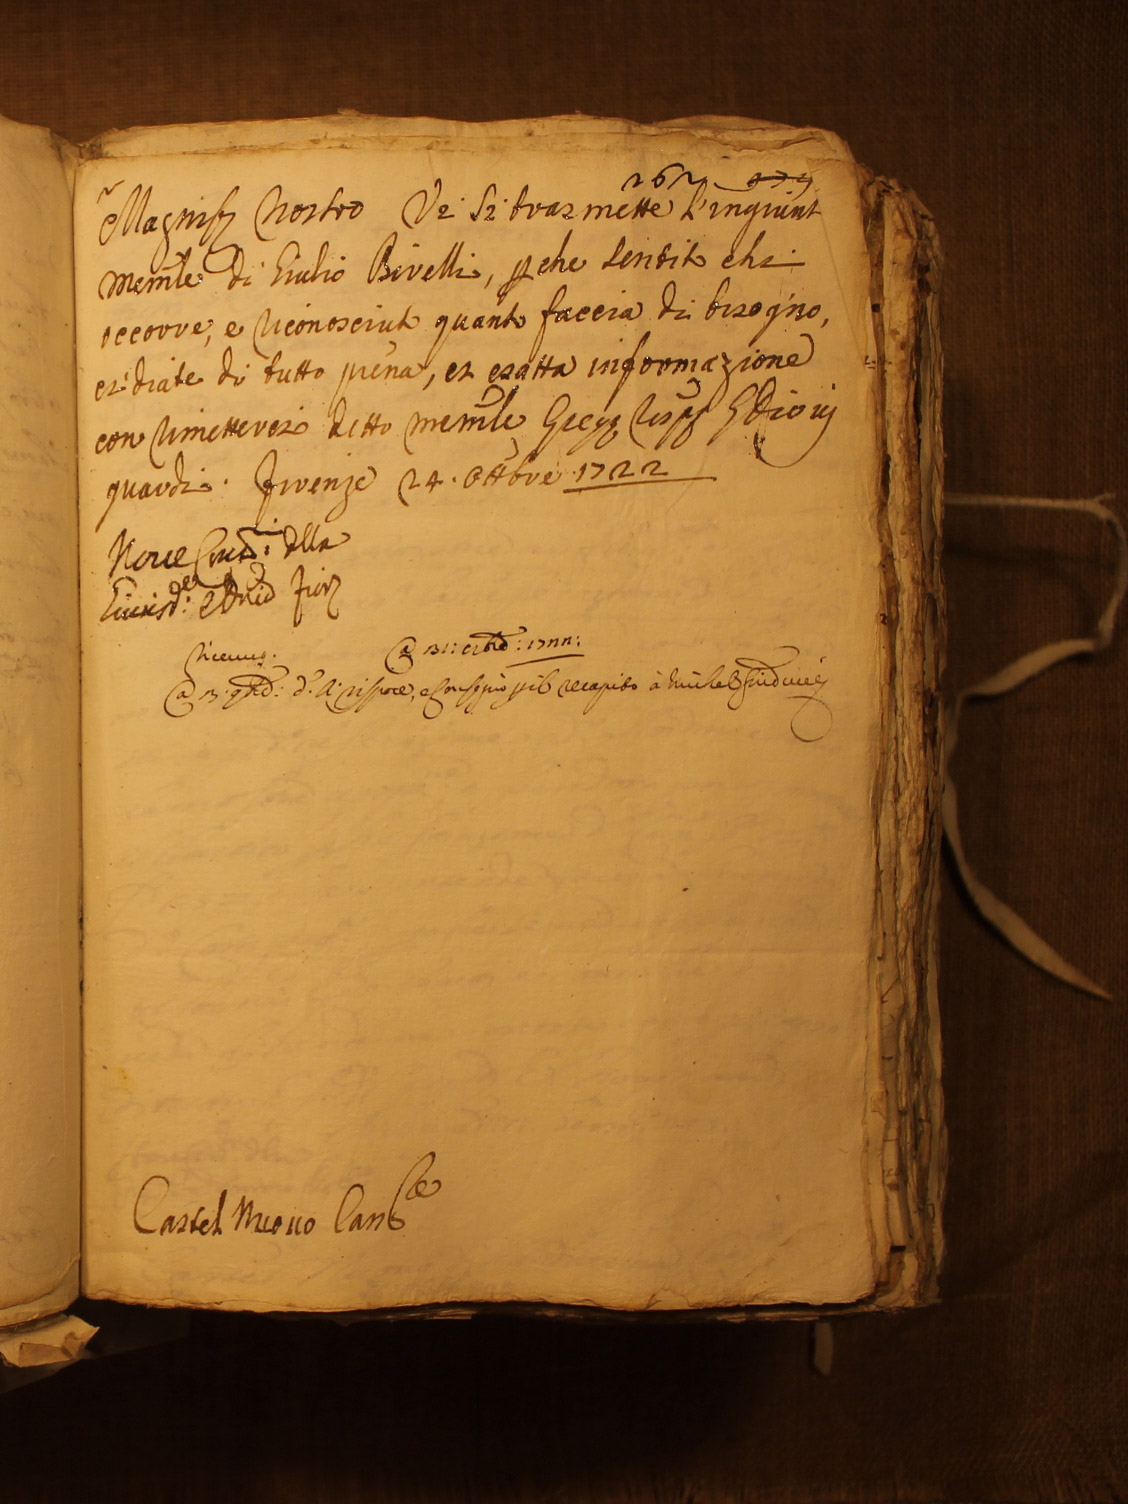 262
Magnif.co Nostro Vi si trasmette l'ingiunt
memle di Giulio Bivelli, perche sentito chi
occorre, e riconosciuto quanto faccia di bisogno,
ci diate di tutto piena, et esatta informazione
con rimettervisi detto memle
guardi. Firenze 24. Ottbre 1722
Nove della
Giurisd: e Fior
Ricevuta @ 31: ottbre: 1722:
@ 13 9bre: d: A: rispose, e consegnò recapito à
Castel Nuovo Canc